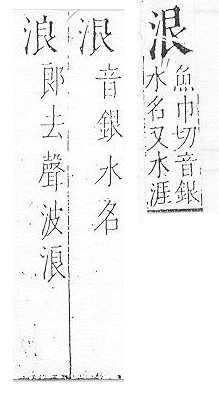 泿
魚巾切音銀
水名又水涯
泿音銀水名
浪郎去聲波浪